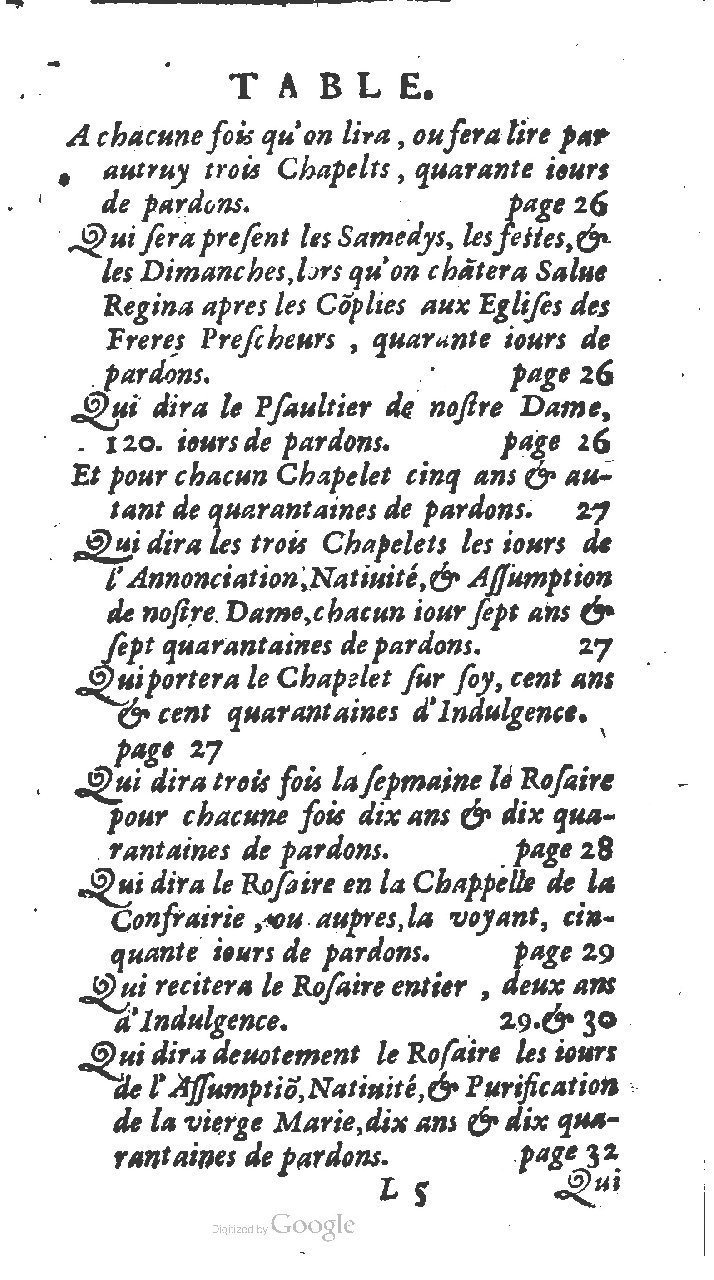 TABLE.
A chacune fois qu'on lira, ou fera lire par
autruy trois Chapelts, quarante iours
de pardons. page 26
Qui ſera preſent les Samedys, les feſtes, &
les Dimanches, lors qu'on chātera Salue
Regina apres les Cōplies aux Egliſes des
Freres Preſcheurs, quarante iours de
pardons. page 26
Qui dira le Pſaultier de noſtre Dame,
120. iours de pardons. page 26
Et pour chacun Chapelet cinq ans & au-
tant de quarantaines de pardons. 27
Qui dira les trois Chapelets les iours de
l'Annonciation, Natiuité, & Aſſumption
de noſtre Dame, chacun iour ſept ans &
ſept quarantaines de pardons. 27
Qui portera le Chapelet ſur ſoy, cent ans
& cent quarantaines d'Indulgence.
page 27
Qui dira trois fois la ſepmaine le Roſaire
pour chacune fois dix ans & dix qua-
rantaines de pardons. page 28
Qui dira le Roſaire en la Chappelle de la
Confrairie, ou aupres, la voyant, cin-
quante iours de pardons. page 29
Qui recitera le Roſaire entier, deux ans
d'Indulgence. 29. & 30
Qui dira deuotement le Roſaire les iours
de l'Aſſumptiō, Natiuité, & Purification
de la vierge Marie, dix ans & dix qua-
rantaines de pardons. page 32
L 5 Qui
Digitized by Google